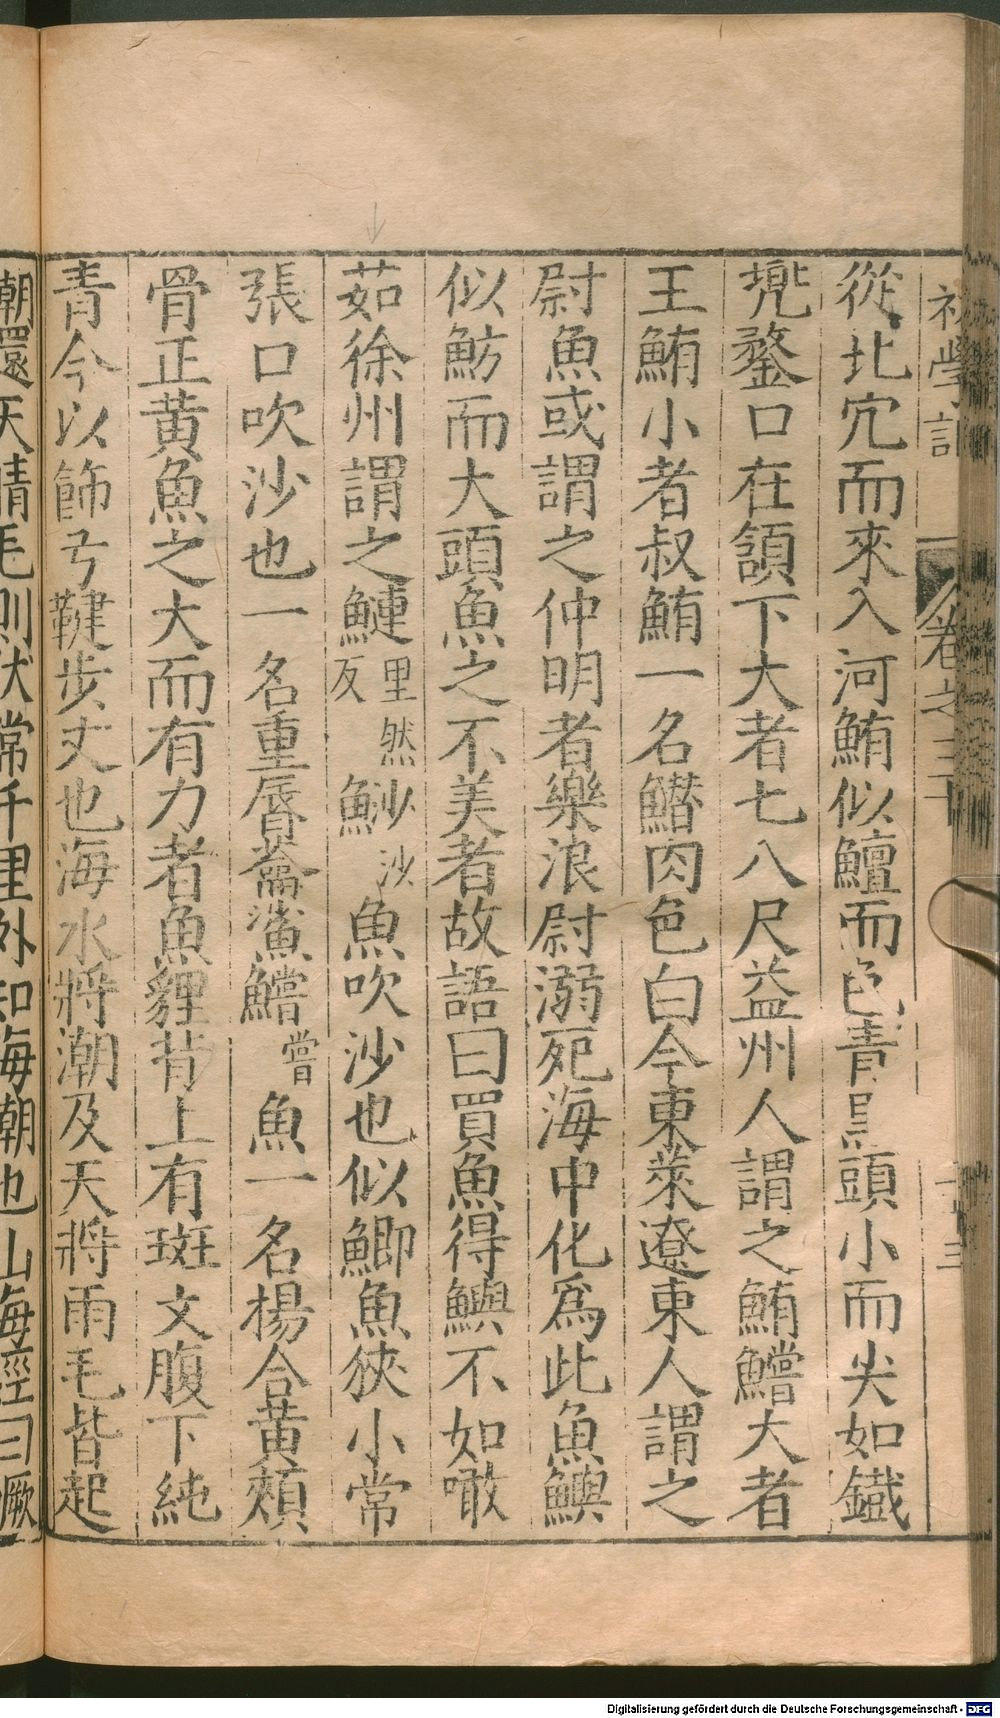 初學記 卷之三十 三
從北穴而來入河鮪似鱣而色青黑頭小而尖如鐵
兠鍪口在頷下大者七八尺益州人謂之鮪鱣大者
王鮪小者叔鮪一名鱃肉色白今東萊遼東人謂之
尉魚或謂之仲明者樂浪尉溺死海中化爲此魚鱮
似魴而大頭魚之不美者故語曰買魚得鱮不如噉
茹徐州謂之鰱里然反魦沙魚吹沙也似鯽魚狹小常
張口吹沙也一名重脣蘥鯊鱨嘗魚一名楊合黃頰
骨正黃魚之大而有力者魚貍背上有斑文腹下純
青今以飾弓鞬步丈也海水將潮及天將雨毛皆起
潮還天晴毛則伏常千里外知海潮也山海經曰橛
Digitalisierung gefördert durch die Deutsche Forschungsgemeinschaft - DFG